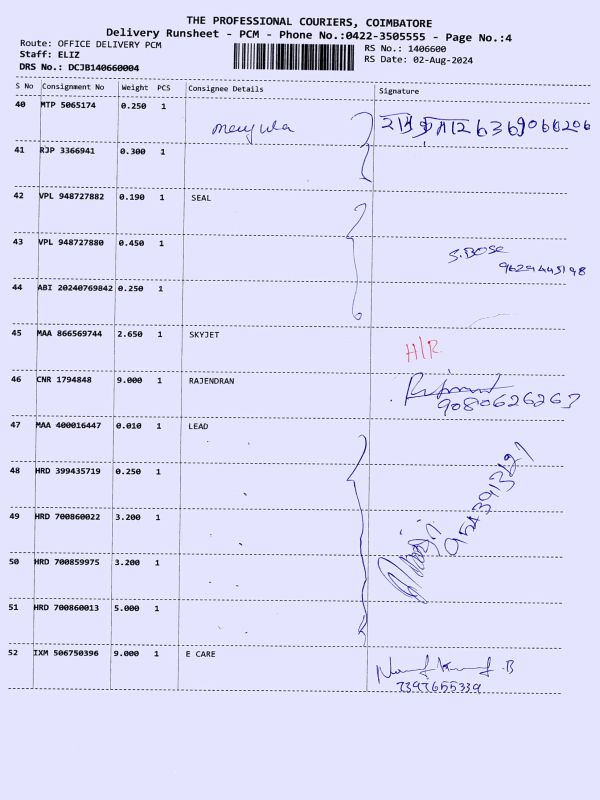 THE PROFESSIONAL COURIERS, COIMBATORE
Delivery Runsheet - PCM - Phone No.:0422-3505555 - Page No.:4
Route: OFFICE DELIVERY PCM
Staff: ELIZ
DRS No.: DCJB140660004
RS No.: 1406600
RS Date: 02-Aug-2024
S No Consignment No Weight PCS Consignee Details Signature
40 MTP 5065174 0.250 1
6369066206
41 RJP 3366941 0.300 1
42 VPL 948727882 0.190 1 SEAL
43 VPL 948727880 0.450 1 S.BOSE
9629445198
44 ABI 20240769842 0.250 1
45 MAA 866569744 2.650 1 SKYJET H/R
46 CNR 1794848 9.000 1 RAJENDRAN
9080626267
47 MAA 400016447 0.010 1 LEAD
48 HRD 399435719 0.250 1
49 HRD 700860022 3.200 1
50 HRD 700859975 3.200 1
51 HRD 700860013 5.000 1
52 IXM 506750396 9.000 1 E CARE
7397655339